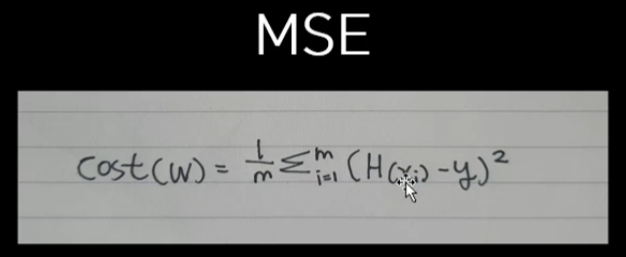 MSE
cost(W) = 1/m Σ^m_{i=1} (H(x_i) - y)²